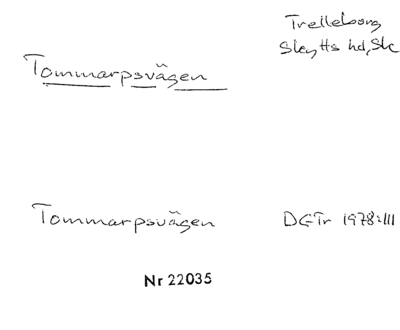 Trelleborg
Skytts hd, Sk
Tommarpsvägen
Tommarpsvägen DGTr 1978:III
Nr 22035